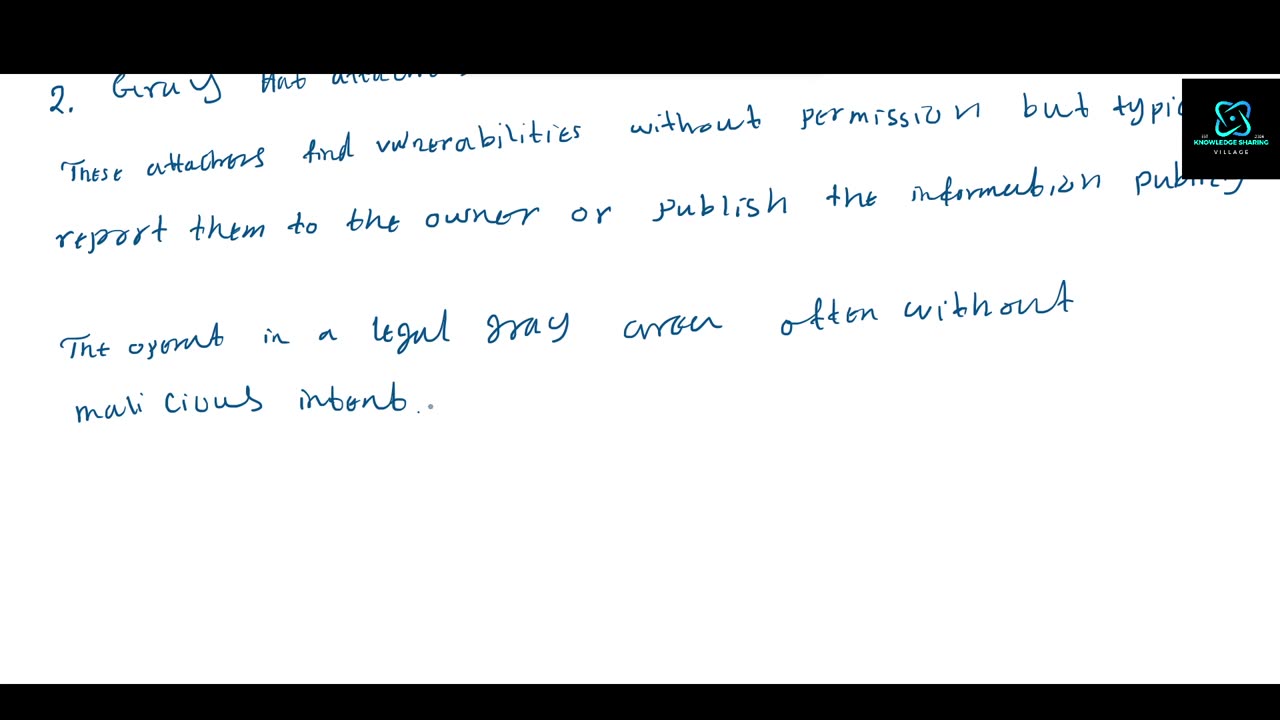 2. Gray Hat
These attackers find vulnerabilities without permission but typic
report them to the owner or publish the information publicly
The operat in a legal gray area often without
malicious intent.
KNOWLEDGE SHARING
VILLAGE